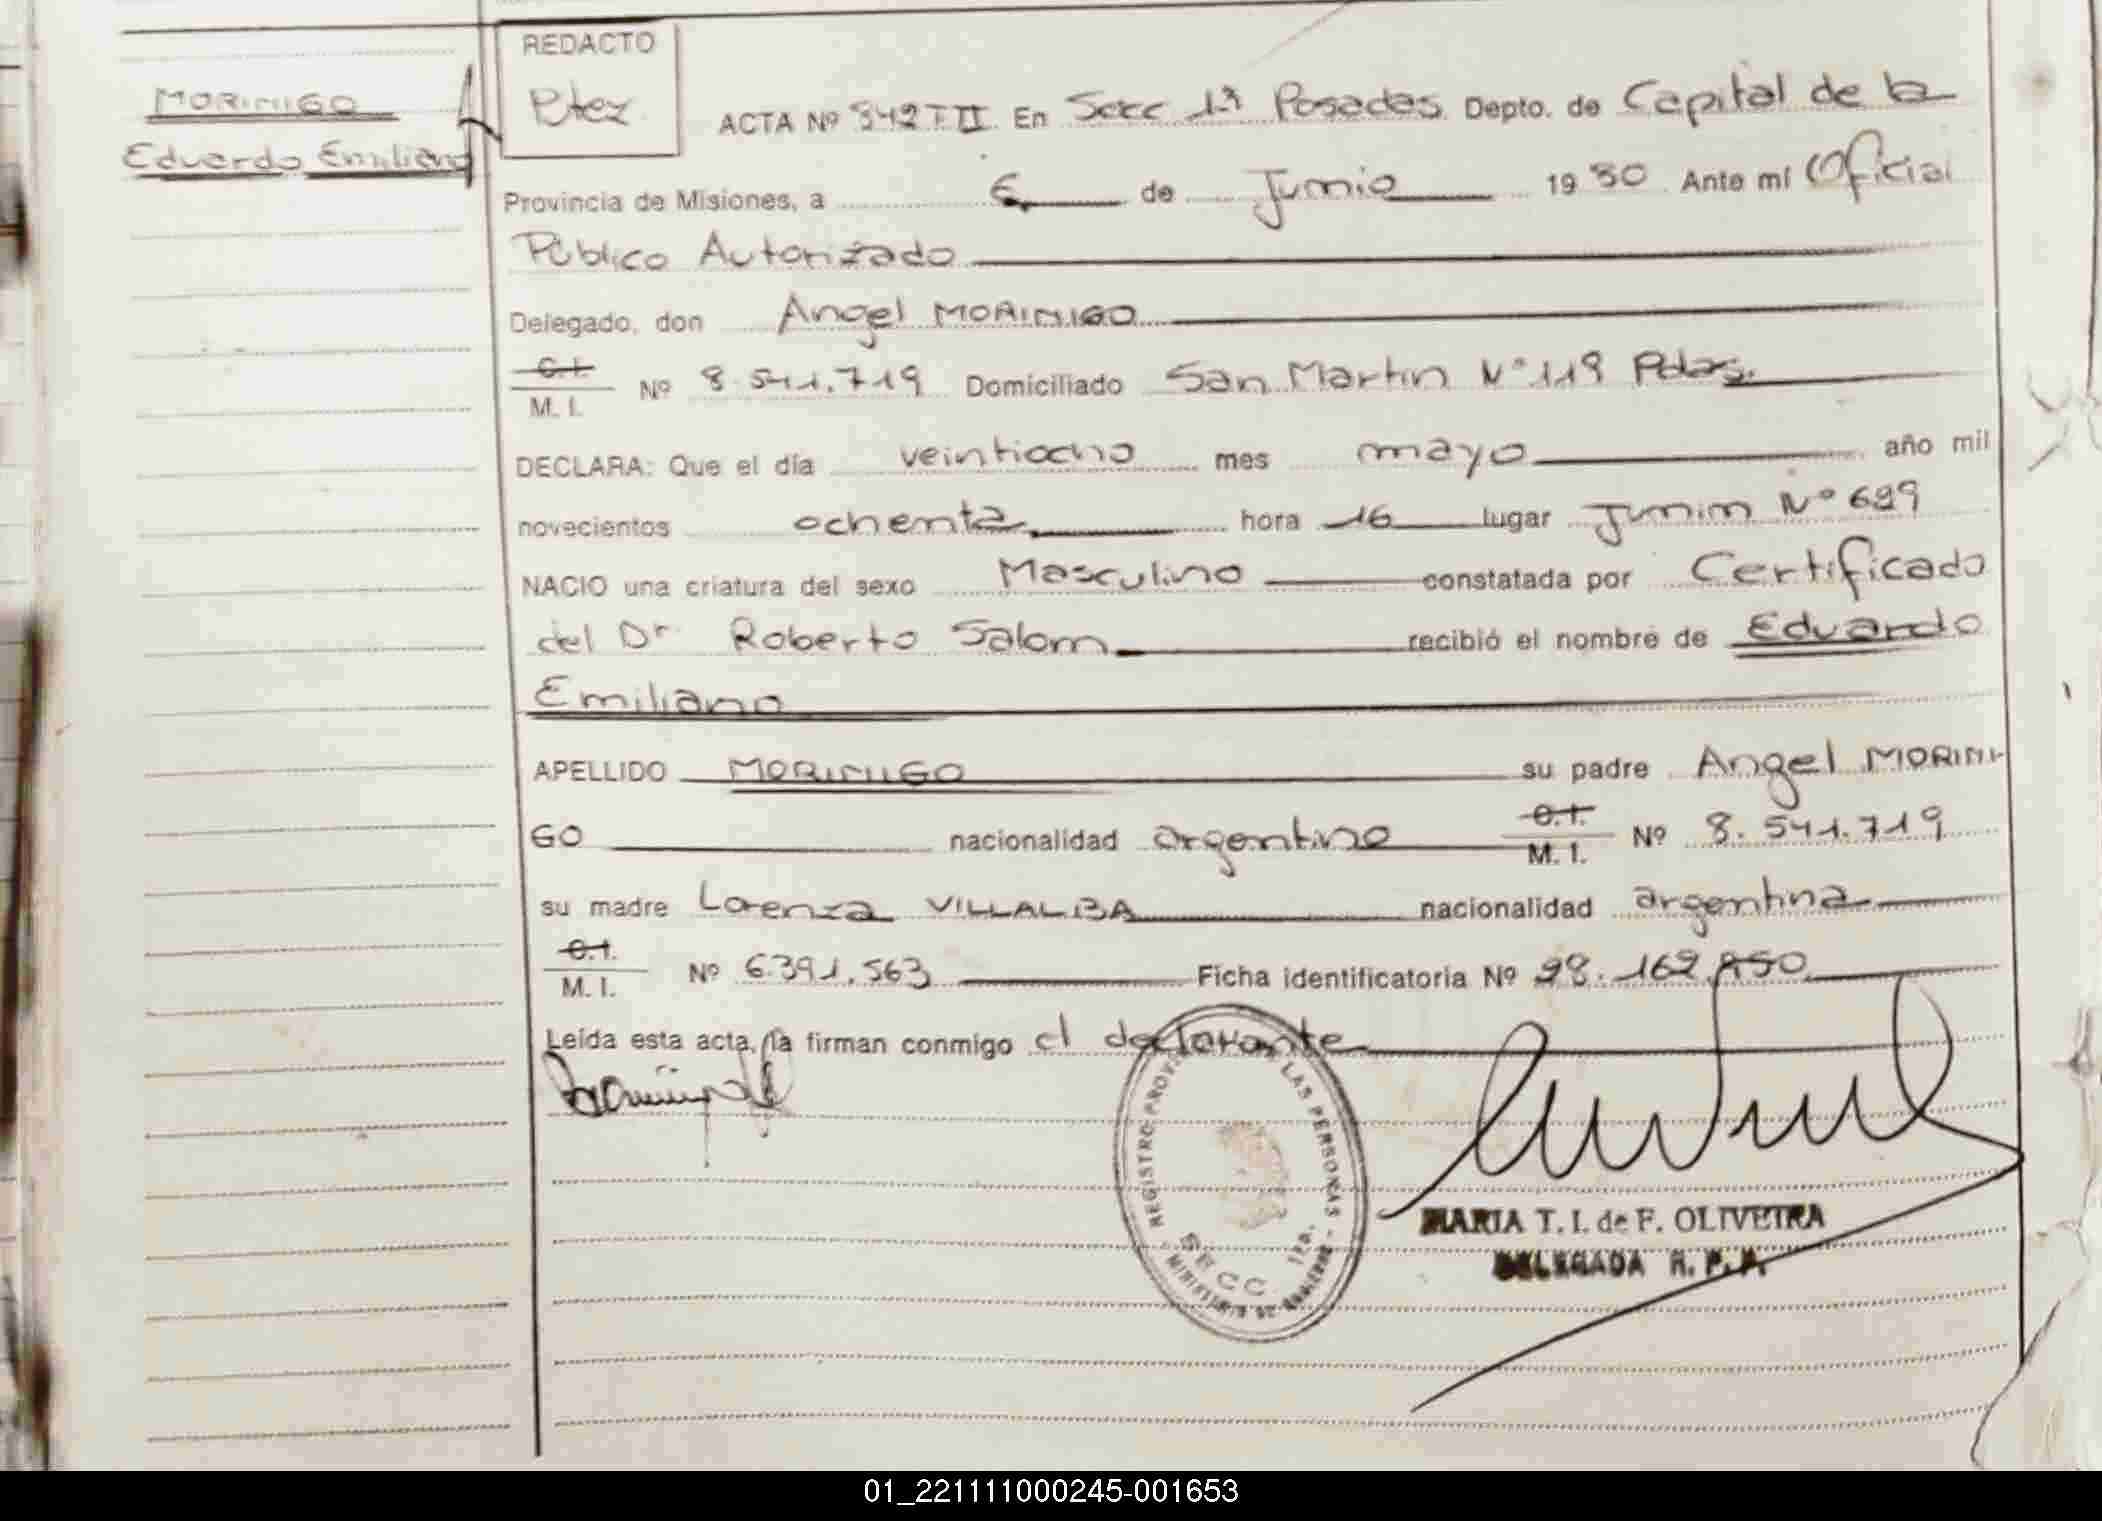 MORINIGO
Eduardo Emiliano
REDACTO
ACTA Nº 842 T II En Secc 1ª Posadas Depto. de Capital de la
Provincia de Misiones, a 6 de Junio 1980 Ante mí Oficial
Público Autorizado
Delegado, don Angel MORINIGO
C.I.
M. I. Nº 8.541.719 Domiciliado San Martin Nº 119 Pdas.
DECLARA: Que el día veintiocho mes mayo año mil
novecientos ochenta hora 16 lugar Junin Nº 689
NACIO una criatura del sexo Masculino constatada por Certificado
del Dr Roberto Salom recibió el nombre de Eduardo
Emiliano
APELLIDO MORINIGO su padre Angel MORINI-
GO nacionalidad argentino C.I.
M. I. Nº 8.541.719
su madre Lorenza VILLALBA nacionalidad argentina
C.I.
M. I. Nº 6.391.563 Ficha identificatoria Nº 28.162.850
Leída esta acta, la firman conmigo el declarante
REGISTRO PROV. LAS PERSONAS
SECC 1RA.
MINISTERIO DE GOBIERNO
MARIA T. I. de F. OLIVEIRA
DELEGADA R. P. P.
01_221111000245-001653